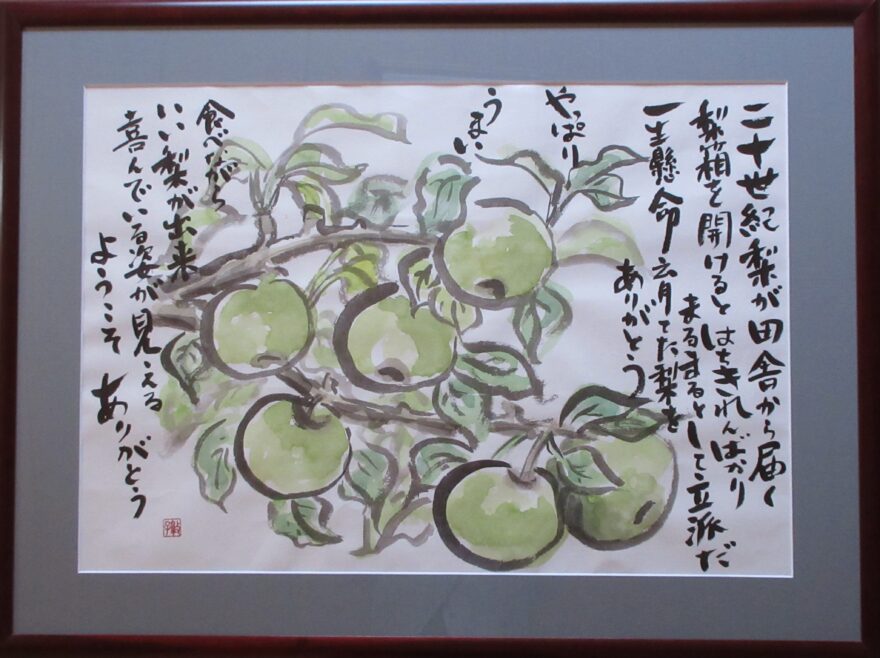 二十世紀梨が田舎から届く
梨箱を開けると はちきれんばかり
まるまるとして 立派だ
一生懸命 育てた梨を
ありがとう
やっぱり
うまい
食べながら
いい梨が出来
喜んでいる姿が見える
ようこそ ありがとう